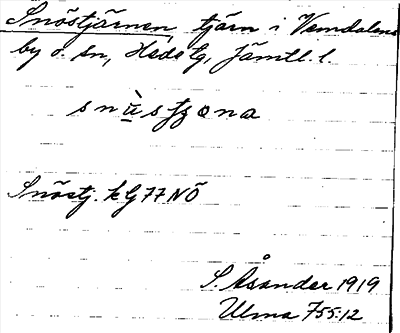 Snöstjärnen, tjärn i Vemdalens
by o. sn, Hede tg, Jämtl. l.
Snöstj. k G 77 NÖ
S. Åsander 1919
Ulma 755:12